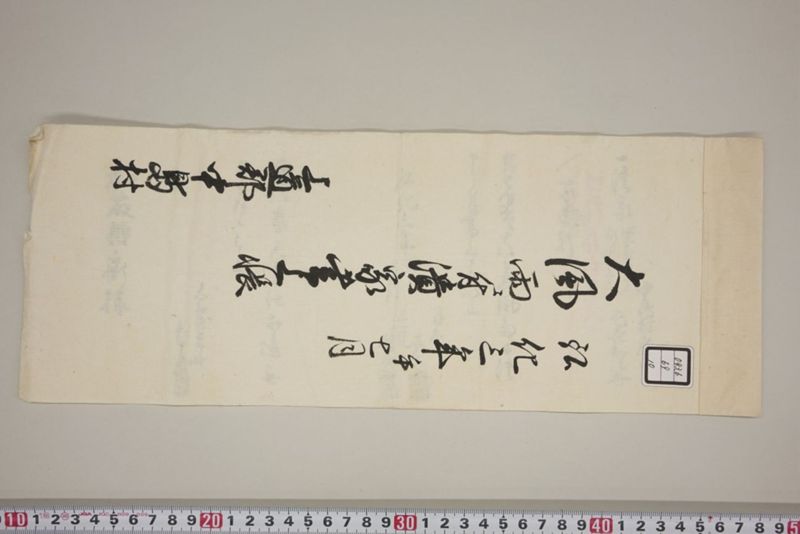 弘化三年七月
大風雨ニ付潰家書上帳
上道郡中島村
69
10
10 1 2 3 4 5 6 7 8 9 20 1 2 3 4 5 6 7 8 9 30 1 2 3 4 5 6 7 8 9 40 1 2 3 4 5 6 7 8 9 5